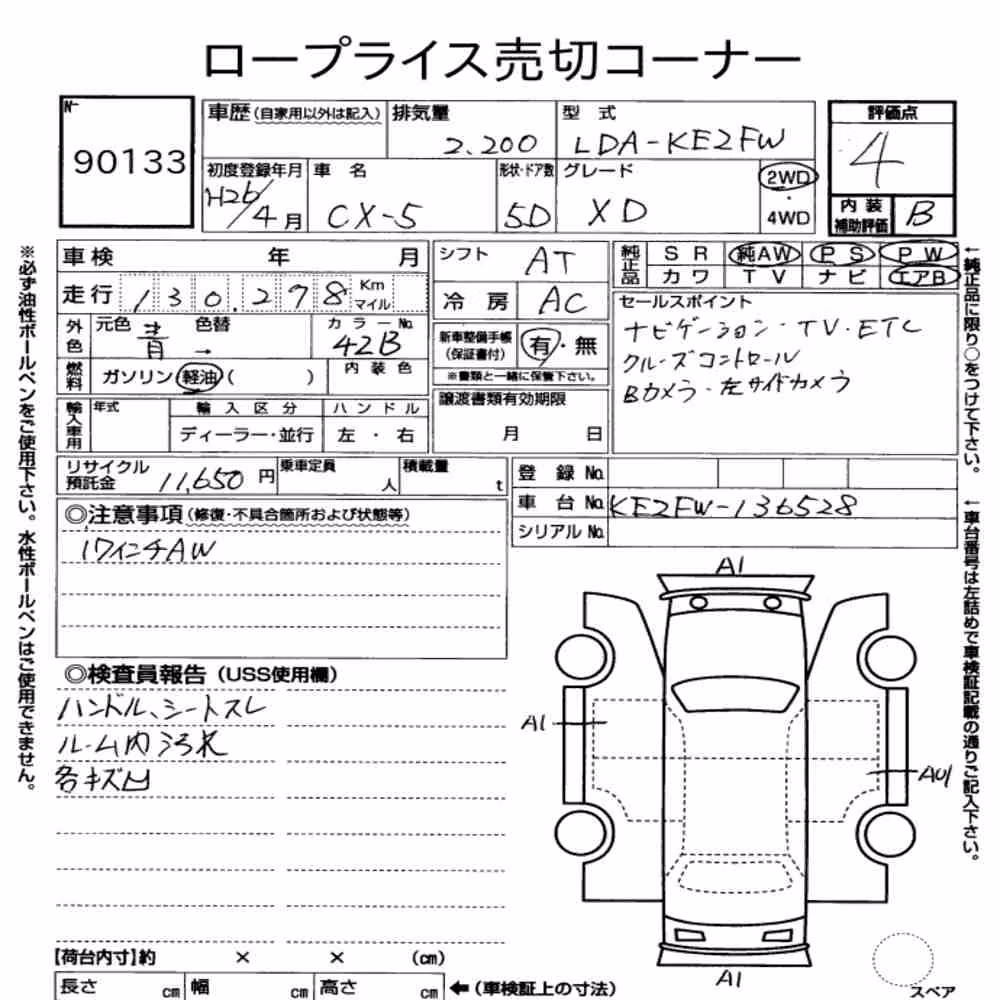 ロープライス売切コーナー
No.
90133
車歴(自家用以外は記入) 排気量 2.200 型式 LDA-KE2FW
初度登録年月 H26/4月 車名 CX-5 形状・ドア数 5D グレード XD 2WD・4WD
評価点 4
内装補助評価 B
車検 年 月
走行 130,278 Km マイル
外色 元色 青 色替 → カラーNo. 42B
燃料 ガソリン 軽油 ( ) 内装色
輸入車用 年式 輸入区分 ディーラー・並行 ハンドル 左・右
シフト AT
冷房 AC
新車整備手帳(保証書付) 有・無
※書類と一緒に保管下さい。
譲渡書類有効期限 月 日
純正品 SR 純AW PS PW
カワ TV ナビ エアB
セールスポイント
ナビゲーション・TV・ETC
クルーズコントロール
Bカメラ・左サイドカメラ
リサイクル預託金 11,650円 乗車定員 人 積載量 t
登録No.
車台No. KE2FW-136528
シリアルNo.
◎注意事項(修復・不具合箇所および状態等)
17インチAW
◎検査員報告(USS使用欄)
ハンドル、シートスレ
ルーム内汚れ
各キズ凹
A1
A1
AU1
A1
スペア
【荷台内寸】約 × × (cm)
長さ cm 幅 cm 高さ cm ←(車検証上の寸法)
※必ず油性ボールペンをご使用下さい。水性ボールペンはご使用できません。
←純正品に限り○をつけて下さい。
←車台番号は左詰めで車検証記載の通りご記入下さい。